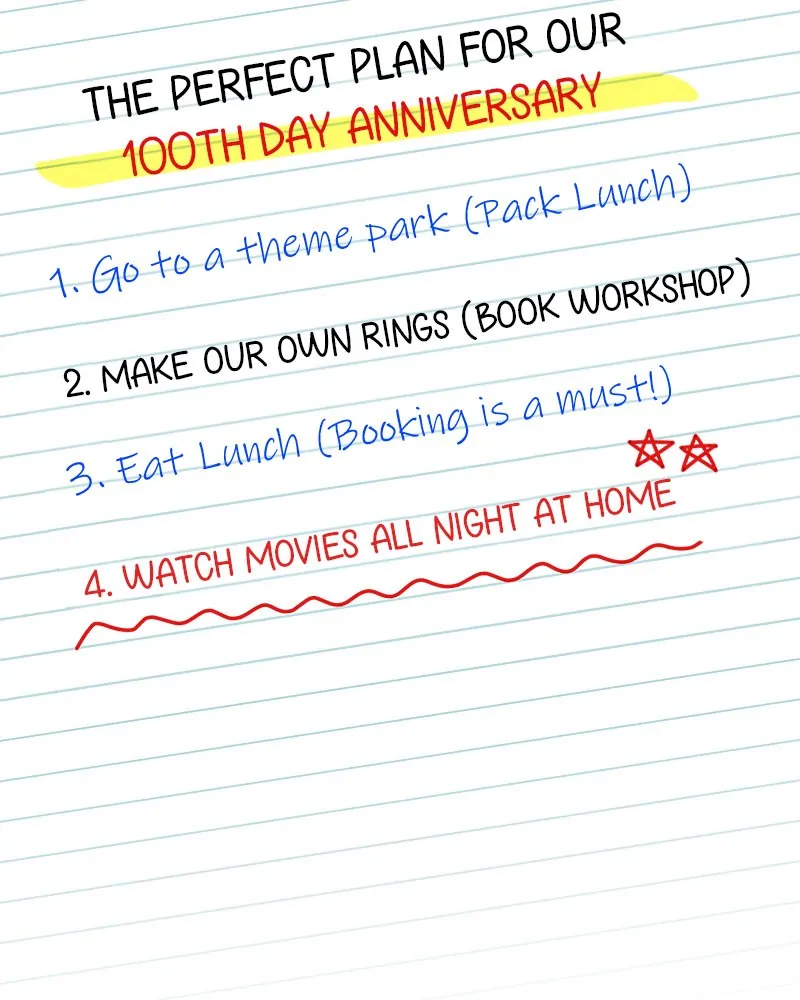 THE PERFECT PLAN FOR OUR
100TH DAY ANNIVERSARY
1. Go to a theme park (Pack Lunch)
2. MAKE OUR OWN RINGS (BOOK WORKSHOP)
3. Eat Lunch (Booking is a must!)
4. WATCH MOVIES ALL NIGHT AT HOME